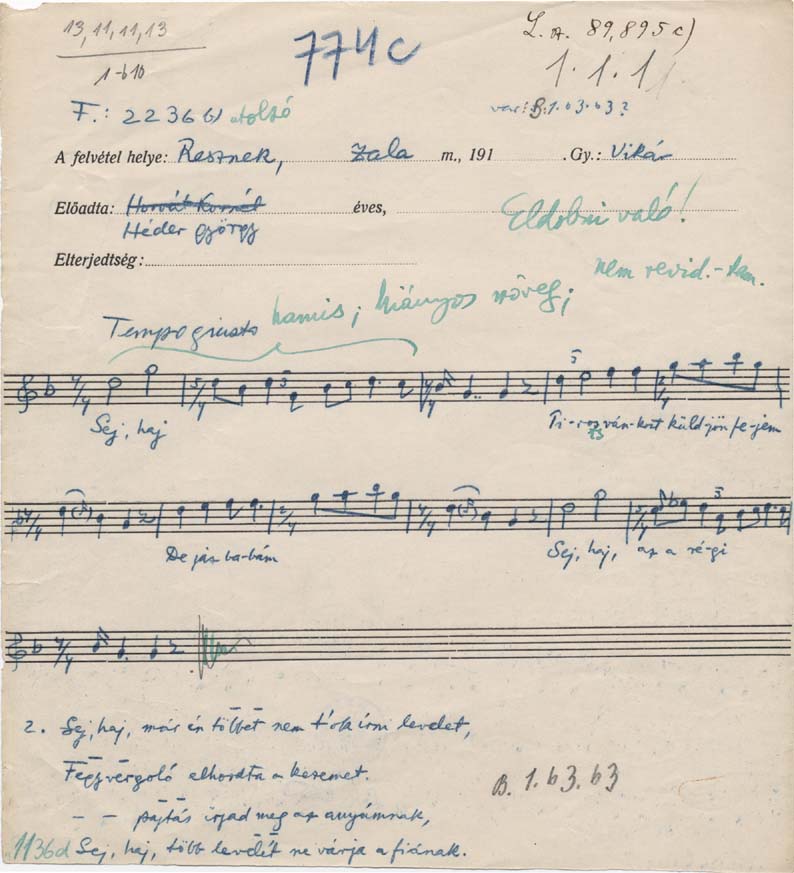 13, 11, 11, 13
1-b10
774c
L. sz. 89,895c)
1. 1. 1
F.: 2236b) utolsó
var: B. 1.63.63?
A felvétel helye: Resznek, Zala m., 191 . Gy.: Vikár
Előadta: Horvát Kornél éves,
Héder György
Eldobni való!
Elterjedtség:
nem revid.-tam.
Tempo giusto hamis; hiányos szöveg;
Sej, haj Ti-ros ván-kost küld-jön fe-jem
De jás ba-bám Sej, haj, az a ré-gi
2. Sej, haj, már én többet nem t'ok írni levelet,
Fegyvergoló elhordta a kezemet.
– – pajtás írjad meg az anyámnak,
B. 1.63.63
1136d Sej, haj, több levelét ne várja a fiának.